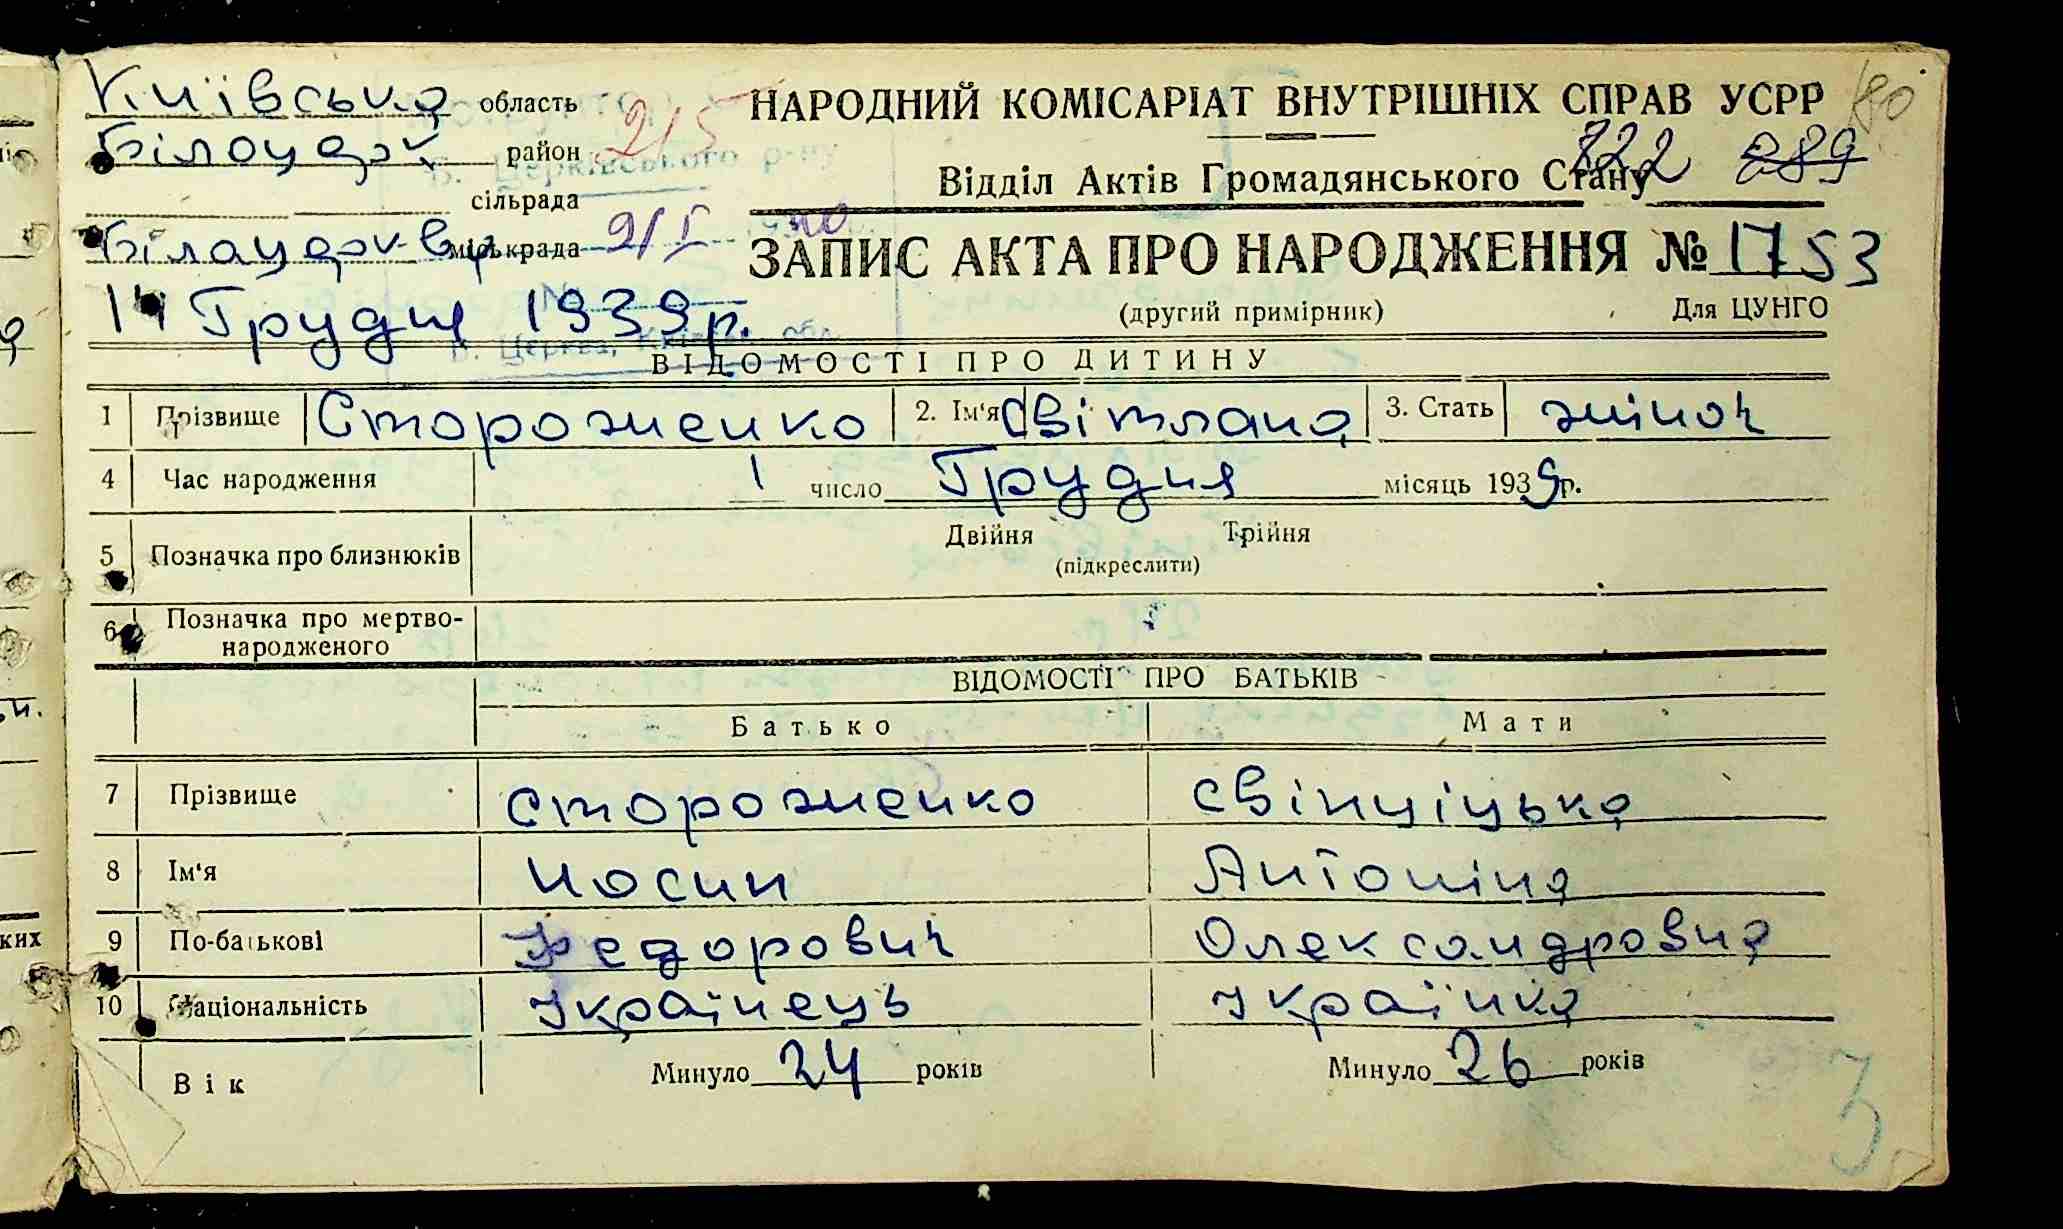 Київська область
Білоцерк район 2/5
Б. Церківського р-ну
сільрада
Білоцерків міськрада 2/І 1940
14 Грудня 1939 р.
Б. Церква, Київської обл.
80
НАРОДНИЙ КОМІСАРІАТ ВНУТРІШНІХ СПРАВ УСРР
Відділ Актів Громадянського Стану 722 289
ЗАПИС АКТА ПРО НАРОДЖЕННЯ № 1753
(другий примірник) Для ЦУНГО
ВІДОМОСТІ ПРО ДИТИНУ
1 Прізвище Стороженко 2. Ім'я Світлана 3. Стать жіноч
4 Час народження 1 число Грудня місяць 1939 р.
5 Позначка про близнюків Двійня Трійня
(підкреслити)
6 Позначка про мертво-
народженого
ВІДОМОСТІ ПРО БАТЬКІВ
Батько Мати
7 Прізвище Стороженко Свінціцька
8 Ім'я Иосип Антоніна
9 По-батькові Федорович Олександровна
10 Національність Українець Українка
Вік Минуло 24 років Минуло 26 років
3
ких